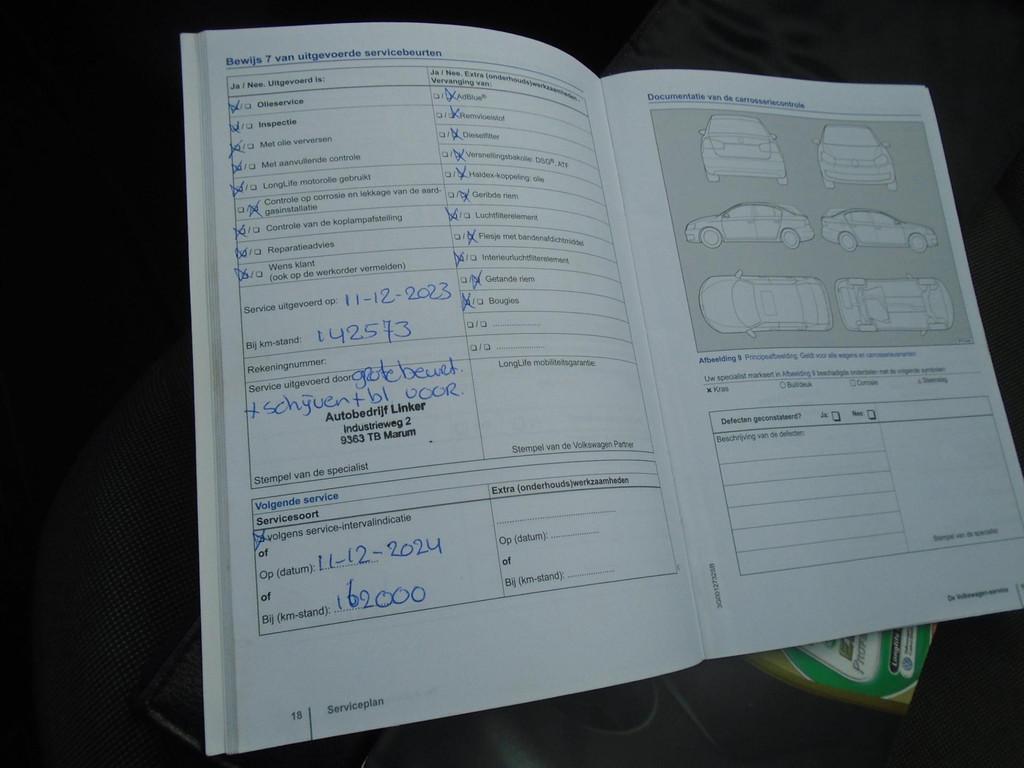 Bewijs 7 van uitgevoerde servicebeurten
Ja / Nee. Uitgevoerd is:
☒/☐ Olieservice
☒/☐ Inspectie
☒/☐ Met olie verversen
☒/☐ Met aanvullende controle
☒/☐ LongLife motorolie gebruikt
☐/☒ Controle op corrosie en lekkage van de aard-
gasinstallatie
☒/☐ Controle van de koplampafstelling
☒/☐ Reparatieadvies
☒/☐ Wens klant
(ook op de werkorder vermelden)
Service uitgevoerd op: 11-12-2023
Bij km-stand: 142573
Rekeningnummer:
Service uitgevoerd door: grote beurt.
+ schijven + bl voor.
Autobedrijf Linker
Industrieweg 2
9363 TB Marum
Stempel van de specialist
Ja / Nee. Extra (onderhouds)werkzaamheden -
Vervanging van:
☐/☒ AdBlue®
☐/☒ Remvloeistof
☐/☒ Dieselfilter
☐/☒ Versnellingsbakolie: DSG®, ATF
☐/☒ Haldex-koppeling: olie
☐/☒ Geribde riem
☒/☐ Luchtfilterelement
☐/☒ Flesje met bandenafdichtmiddel
☒/☐ Interieurluchtfilterelement
☐/☒ Getande riem
☒/☐ Bougies
☐/☐ ....................
☐/☐ ....................
LongLife mobiliteitsgarantie:
Stempel van de Volkswagen Partner
Volgende service
Servicesoort
☒ volgens service-intervalindicatie
of
Op (datum): 11-12-2024
of
Bij (km-stand): 162000
Extra (onderhouds)werkzaamheden
Op (datum): ....................
of
Bij (km-stand): ....................
18 | Serviceplan
Documentatie van de carrosseriecontrole
Afbeelding 9 Principeafbeelding: Geldt voor alle wagens en carrosserievarianten
Uw specialist markeert in Afbeelding 9 beschadigde onderdelen met de volgende symbolen:
x Kras ○ Buil/deuk □ Corrosie △ Steenslag
Defecten geconstateerd? Ja: ☐ Nee: ☐
Beschrijving van de defecten:
Stempel van de specialist
De Volkswagen-service
Longlife